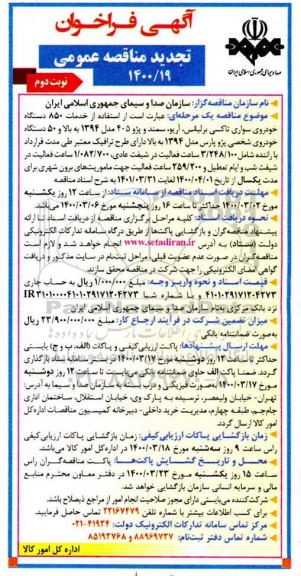 آگهی فراخوان
تجدید مناقصه عمومی
۱۴۰۰/۱۹
نوبت دوم
صدا و سیمای جمهوری اسلامی ایران
نام سازمان مناقصه گزار: سازمان صدا و سیمای جمهوری اسلامی ایران
موضوع مناقصه یک مرحله‌ای: عبارت است از استفاده از خدمات ۸۵۰ دستگاه
خودروی سواری تاکسی برلیانس، آریو، سمند و پژو ۴۰۵ مدل ۱۳۹۴ به بالا و ۵۰ دستگاه
خودروی شخصی پژو پارس مدل ۱۳۹۴ به بالا دارای طرح ترافیک معتبر طی مدت قرارداد
با راننده شامل ۳/۲۴۸/۱۰۰ ساعت فعالیت در شیفت عادی، ۱/۰۸۲/۷۰۰ ساعت فعالیت در
شیفت شب و ایام تعطیل و ۲۵۹/۲۰۰ ساعت فعالیت جهت ماموریت‌های برون شهری برای
مدت یکسال از تاریخ ۱۴۰۰/۰۴/۰۱ لغایت ۱۴۰۱/۰۳/۳۱ به شرح اسناد مناقصه
مهلت دریافت اسناد مناقصه از سامانه ستاد: از ساعت ۱۲ روز یکشنبه
مورخ ۱۴۰۰/۰۳/۰۲ حداکثر تا ساعت ۱۶ روز پنجشنبه مورخ ۱۴۰۰/۰۳/۰۶ می باشد.
نحوه دریافت اسناد: کلیه مراحل برگزاری مناقصه از دریافت اسناد تا ارائه
پیشنهاد مناقصه‌گران و بازگشایی پاکت‌ها از طریق درگاه سامانه تدارکات الکترونیکی
دولت (ستاد) به آدرس www.setadiran.ir انجام خواهد شد و لازم است
مناقصه‌گران در صورت عدم عضویت قبلی، مراحل ثبت‌نام در سایت مذکور و دریافت
گواهی امضای الکترونیکی را جهت شرکت در مناقصه محقق سازند.
قیمت اسناد و نحوه واریز وجه: مبلغ ۱/۰۰۰/۰۰۰ ریال به حساب جاری
نزد بانک مرکزی بنام سازمان صدا و سیمای جمهوری اسلامی ایران
میزان تضمین شرکت در فرآیند ارجاع کار: مبلغ ۲۳/۹۰۰/۰۰۰/۰۰۰ ریال
به‌صورت ضمانتنامه بانکی
مهلت ارسال پیشنهادها: پاکت ارزیابی کیفی و پاکات (الف، ب و ج) بایستی
حداکثر تا ساعت ۱۲ روز دوشنبه مورخ ۱۴۰۰/۰۳/۱۷ در سامانه ستاد بارگذاری
گردد. ضمنا پاکت الف حاوی ضمانتنامه بانکی می‌بایست تا ساعت ۱۲ روز دوشنبه
مورخ ۱۴۰۰/۰۳/۱۷ به‌صورت فیزیکی و در پاکت دربسته به سازمان صدا و سیما به آدرس:
تهران- خیابان ولیعصر، نرسیده به پارک وی، خیابان استقلال، ساختمان اداری
جام‌جم، طبقه چهارم، مدیریت خرید داخلی- دبیرخانه کمیسیون مناقصات اداره کل
امور کالا ارسال گردد.
زمان بازگشایی پاکات ارزیابی کیفی: زمان بازگشایی پاکات ارزیابی کیفی
راس ساعت ۹ روز سه‌شنبه مورخ ۱۴۰۰/۰۳/۱۸ در اداره کل امور کالا می‌باشد.
محل و تاریخ گشایش پاکت‌ها: پاکت مناقصه‌گران راس
ساعت ۱۵ روز یکشنبه مورخ ۱۴۰۰/۰۳/۲۳ در دفتر معاون محترم منابع
مالی و سرمایه انسانی سازمان بازگشایی خواهد شد.
شرکت‌کننده می‌بایستی دارای مجوز صلاحیت انجام امور از مراجع ذیصلاح باشد.
برای کسب اطلاعات بیشتر با شماره تلفن ۲۲۱۶۷۴۷۹ تماس حاصل فرمایید.
مرکز تماس سامانه تدارکات الکترونیک دولت: ۰۲۱-۴۱۹۳۴
شماره تماس دفتر ثبت‌نام: ۸۸۹۶۹۷۳۷ و ۸۵۱۹۳۷۶۸
اداره کل امور کالا